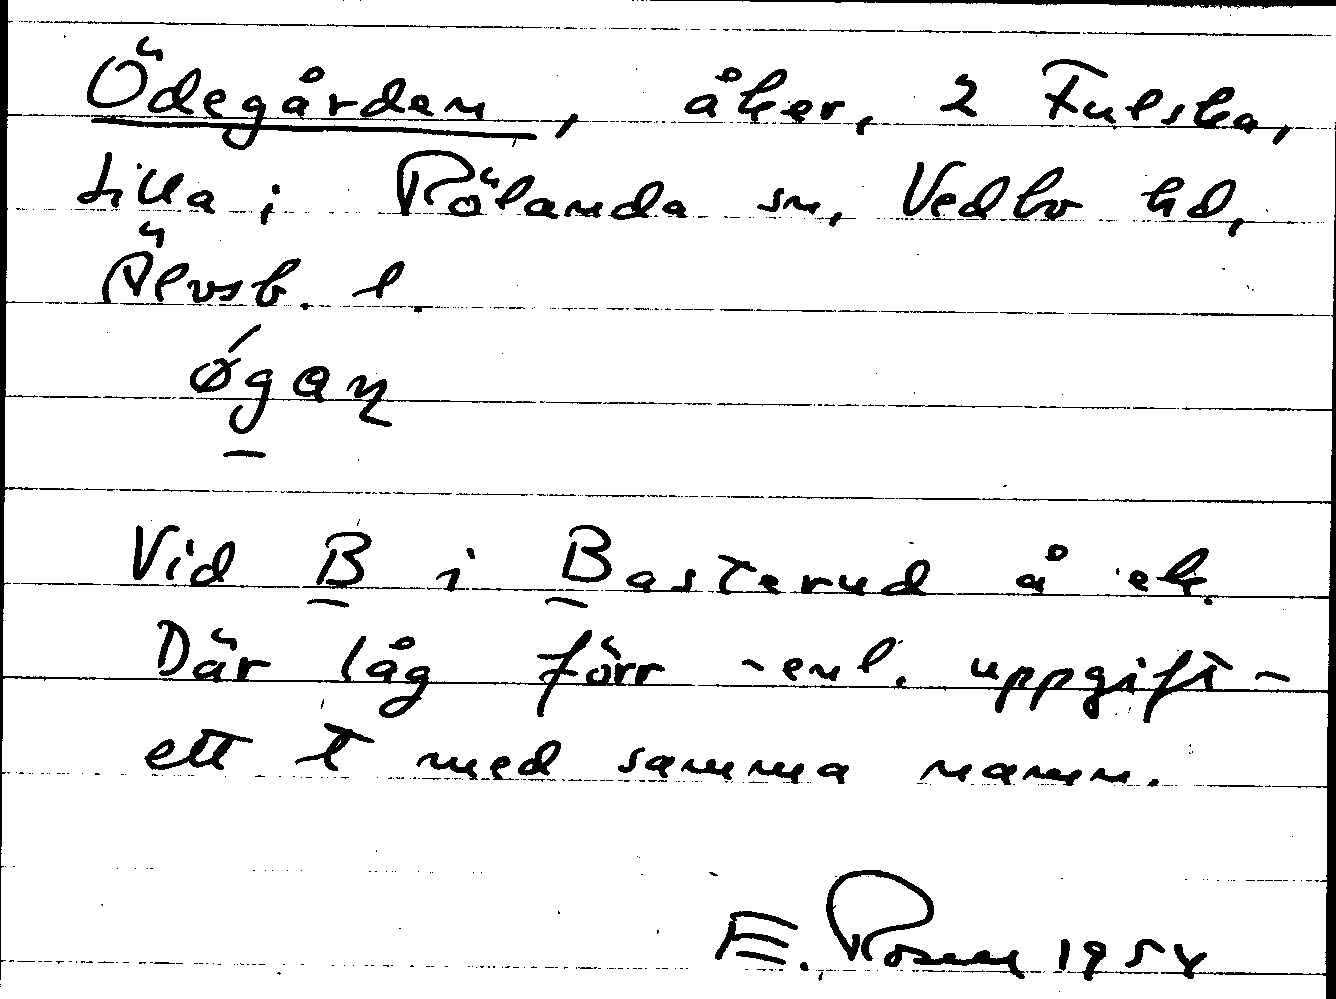 Ödegården, åker, 2 Fulska,
Lilla i Rölanda sn, Vedbo hd,
Älvsb. l.
ǿgan
Vid B i Basterud å ek.
Där låg förr - enl. uppgift -
ett t med samma namn.
E. Rosell 1954